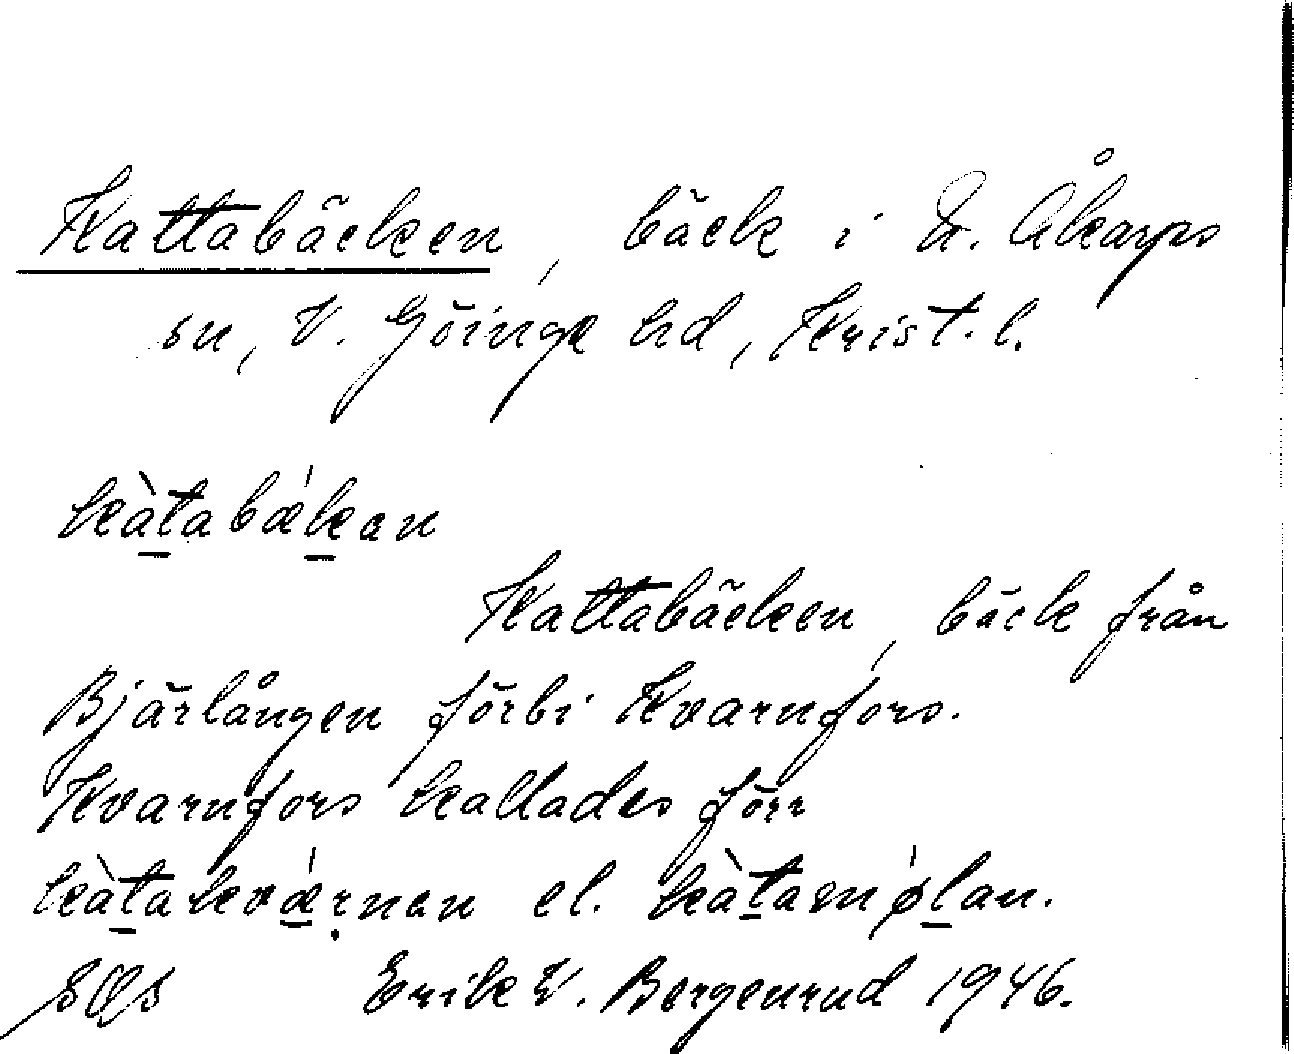 Kattabäcken, bäck i N. Åkarps
sn, V. Göinge hd, Krist. l.
kàtabǽkan
Kattabäcken, bäck från
Bjärlången förbi Kvarnfors.
Kvarnfors kallades förr
kàtakvǽrnan el. kàtamǿlan.
SOS Erik W. Bergenrud 1946.